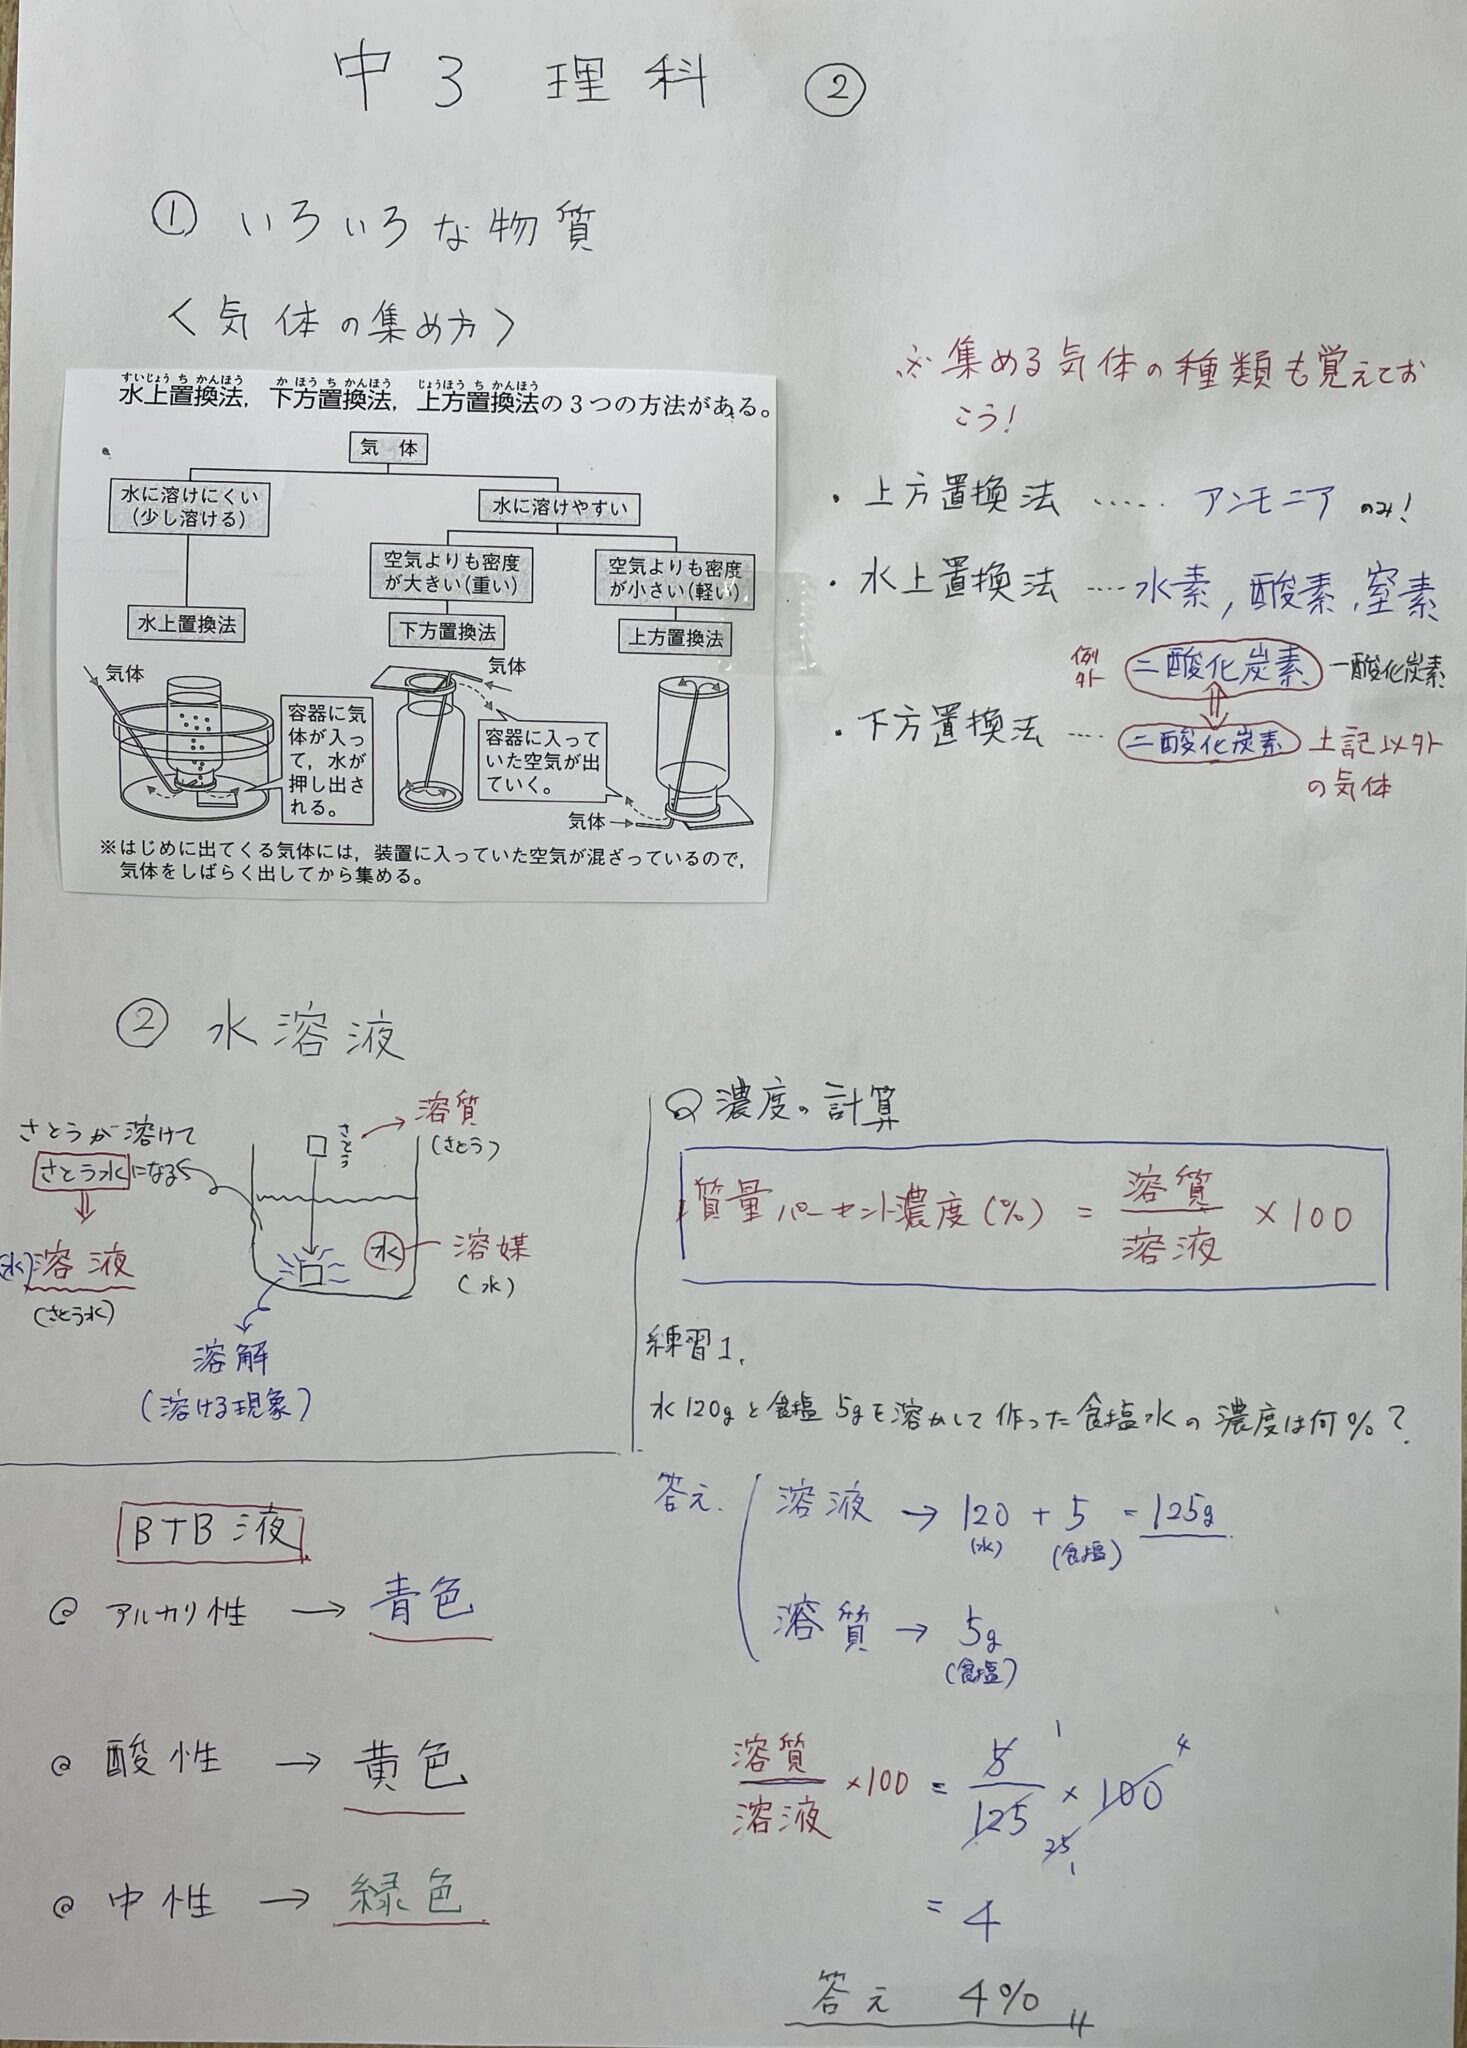 中3 理科 ②
① いろいろな物質
〈気体の集め方〉
すいじょうちかんほう かほうちかんほう じょうほうちかんほう
水上置換法，下方置換法，上方置換法の3つの方法がある。
気 体
水に溶けにくい
(少し溶ける)
水に溶けやすい
空気よりも密度
が大きい(重い)
空気よりも密度
が小さい(軽い)
水上置換法
下方置換法
上方置換法
気体
容器に気
体が入っ
て，水が
押し出さ
れる。
気体
容器に入って
いた空気が出
ていく。
気体
※はじめに出てくる気体には，装置に入っていた空気が混ざっているので，
気体をしばらく出してから集める。
※集める気体の種類も覚えてお
こう!
・上方置換法 ····· アンモニア のみ!
・水上置換法 ···· 水素，酸素，窒素
例外 二酸化炭素 一酸化炭素
・下方置換法 ···· 二酸化炭素 上記以外
の気体
② 水溶液
さとうが溶けて
さとう水になる
(水)溶液
(さとう水)
さとう
溶質
(さとう)
水 溶媒
(水)
溶解
(溶ける現象)
BTB液
◎ アルカリ性 → 青色
◎ 酸性 → 黄色
◎ 中性 → 緑色
◎ 濃度の計算
質量パーセント濃度(%) = 溶質/溶液 ×100
練習1.
水120gと食塩5gを溶かして作った食塩水の濃度は何%?
答え. 溶液 → 120 + 5 = 125g
(水) (食塩)
溶質 → 5g
(食塩)
溶質/溶液 ×100 = 5/125 × 100
1 4
25
1
= 4
答え 4%